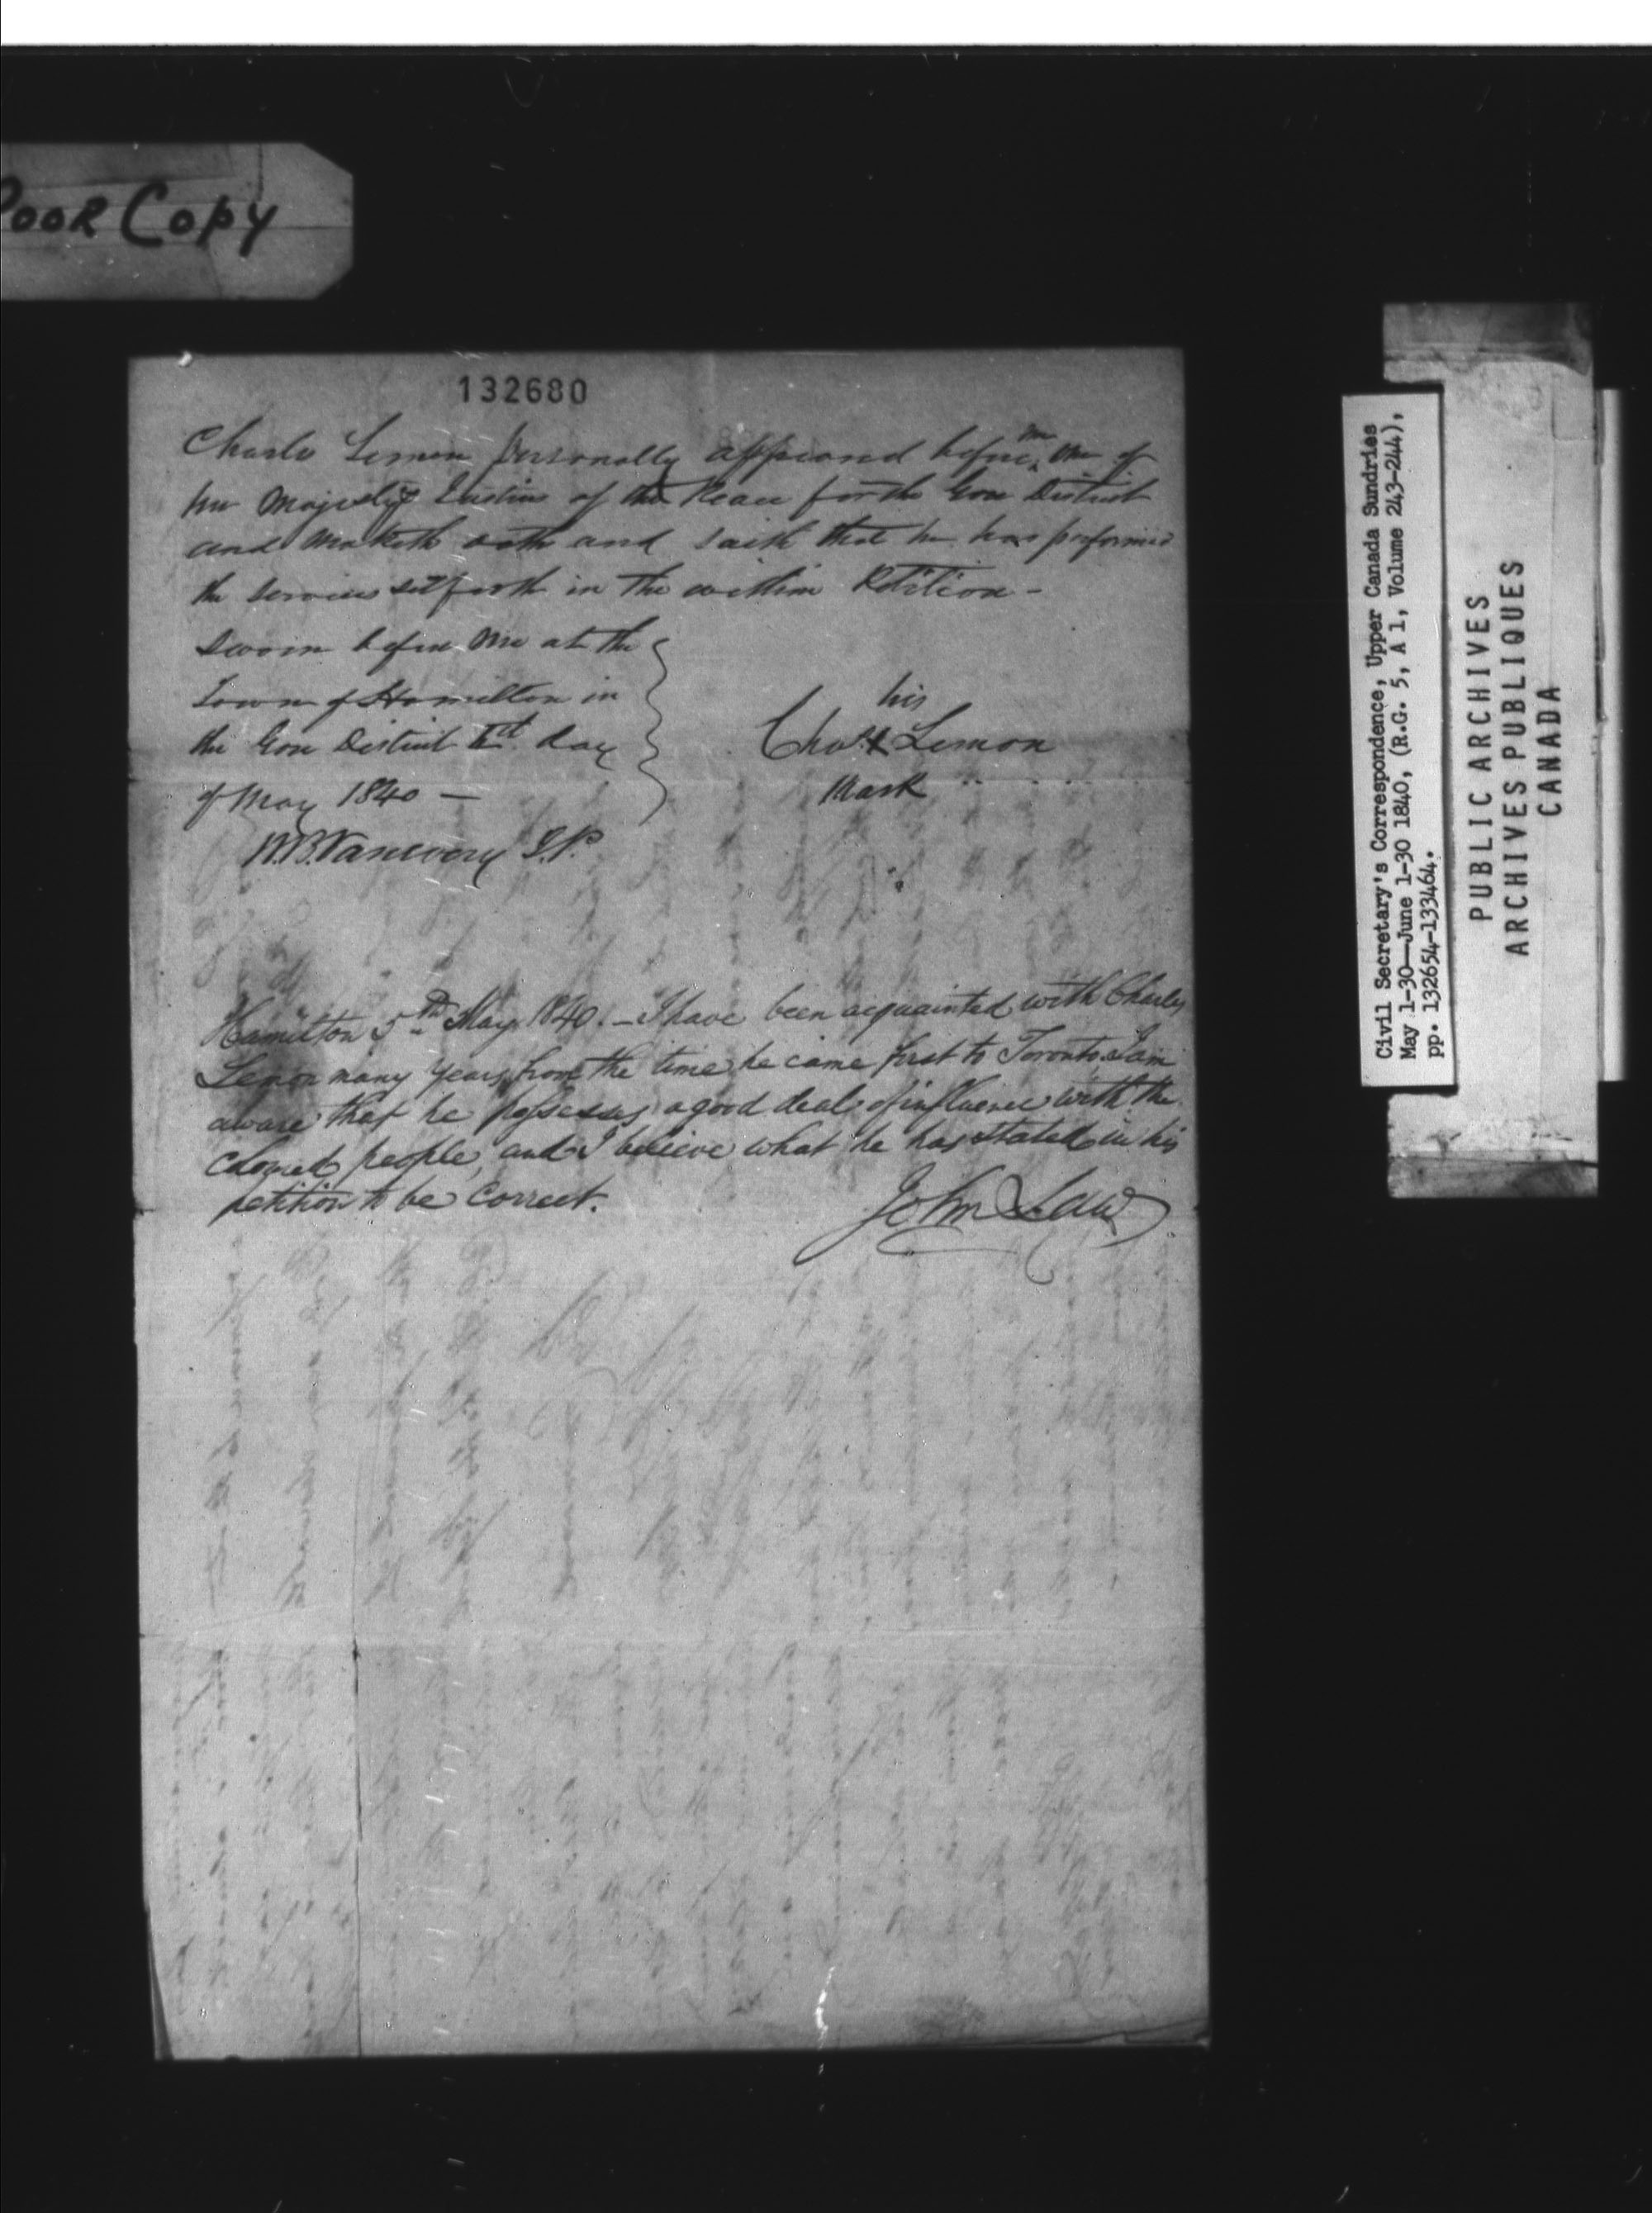 POOR COPY
132680
Charles Lemon personally appeared before me one of
her Majestys Justices of the Peace for the Gore District
and maketh oath and saith that he has performed
the services set forth in the within Petition -
Sworn before me at the
Town of Hamilton in
the Gore District 1st day
of May 1840 —
W.B. Vanevery J.P.
his
Chas X Lemon
Mark
Hamilton 5th May 1840. - I have been acquainted with Charles
Lemon many years, from the time he came first to Toronto, I am
aware that he possesses a good deal of influence with the
colored people, and I believe what he has stated in his
petition to be correct.
John Law
Civil Secretary's Correspondence, Upper Canada Sundries
May 1-30—June 1-30 1840, (R.G. 5, A 1, Volume 243-244),
pp. 132654-133464.
PUBLIC ARCHIVES
ARCHIVES PUBLIQUES
CANADA